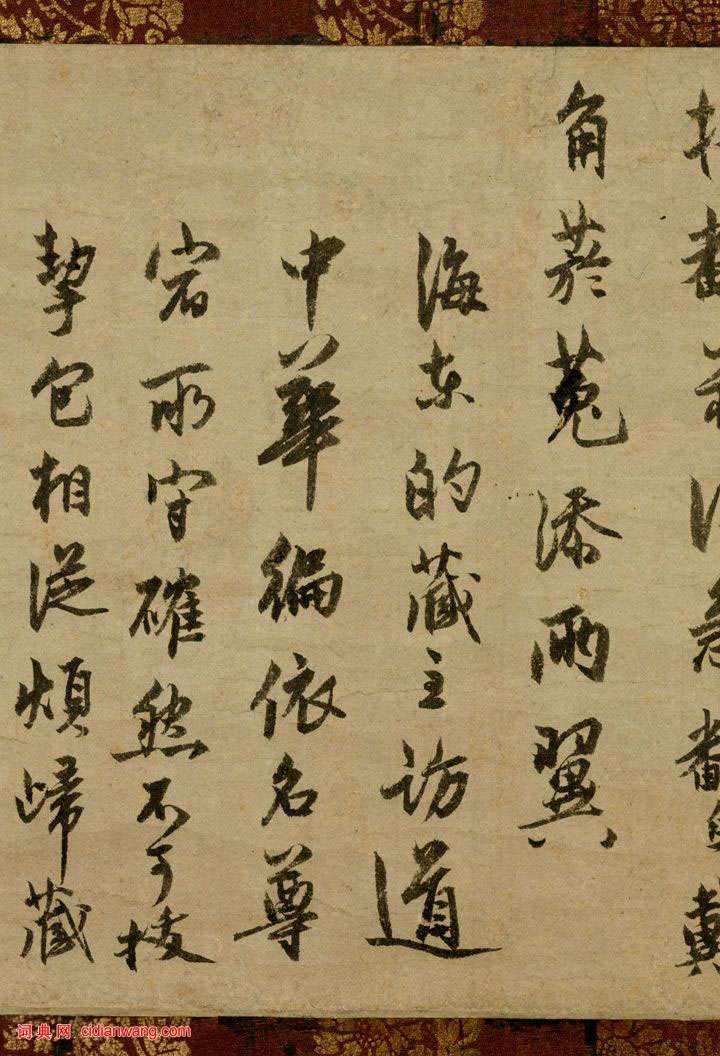 角菸菟添兩翼
海東的藏主訪道
中華徧依名尊
宿所守確然不可拔
挈包相從煩歸藏
词典网 cidianwang.com